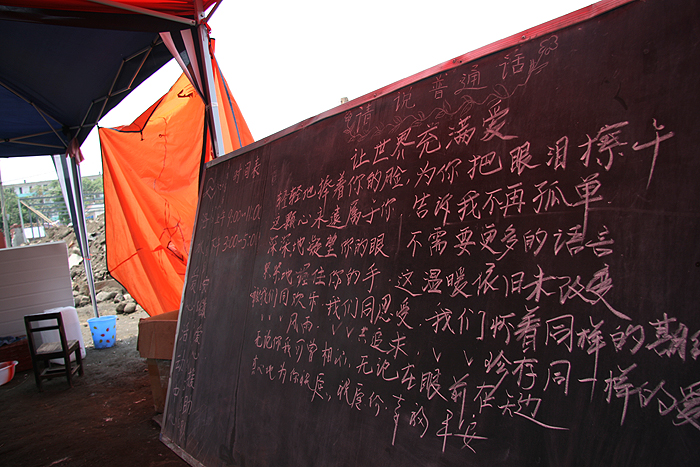 请 说 普 通 话
让世界充满爱
时间表
轻轻地捧着你的脸,为你把眼泪擦干
这颗心永远属于你,告诉我不再孤单
上午9:00—11:00
深深地凝望你的眼 不需要更多的语言
下午3:00—5:00
紧紧地握住你的手,这温暖依旧未改变
我们同欢乐,我们同忍受,我们怀着同样的期
风雨,㇏㇏共追求,㇏㇏珍存同一样的爱
无论你我可曾相识,无论在眼前在天边
真心地为你祝愿,祝愿你幸福平安